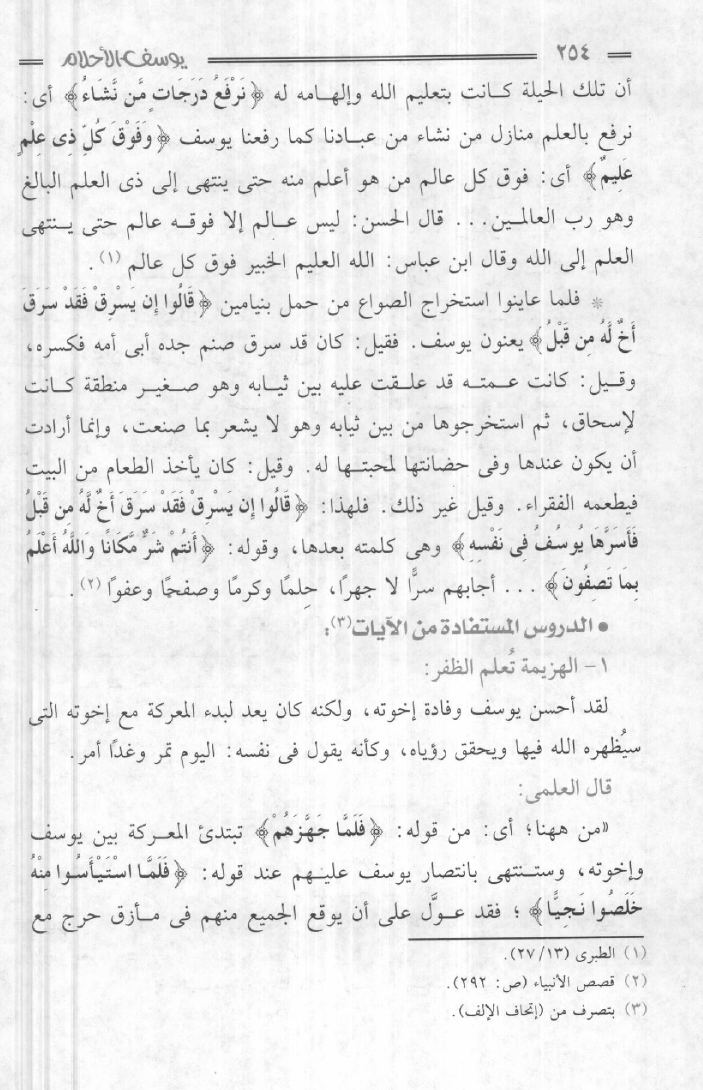 ٢٥٤ يوسف الأحلام
أن تلك الحيلة كانت بتعليم الله وإلهامه له ﴿نَرْفَعُ دَرَجَاتٍ مَّن نَّشَاءُ﴾ أى:
نرفع بالعلم منازل من نشاء من عبادنا كما رفعنا يوسف ﴿وَفَوْقَ كُلِّ ذِى عِلْمٍ
عَلِيمٌ﴾ أى: فوق كل عالم من هو أعلم منه حتى ينتهى إلى ذى العلم البالغ
وهو رب العالمين... قال الحسن: ليس عالم إلا فوقه عالم حتى ينتهى
العلم إلى الله وقال ابن عباس: الله العليم الخبير فوق كل عالم (١).
* فلما عاينوا استخراج الصواع من حمل بنيامين ﴿قَالُوا إِن يَسْرِقْ فَقَدْ سَرَقَ
أَخٌ لَّهُ مِن قَبْلُ﴾ يعنون يوسف. فقيل: كان قد سرق صنم جده أبى أمه فكسره،
وقيل: كانت عمته قد علقت عليه بين ثيابه وهو صغير منطقة كانت
لإسحاق، ثم استخرجوها من بين ثيابه وهو لا يشعر بما صنعت، وإنما أرادت
أن يكون عندها وفى حضانتها لمحبتها له. وقيل: كان يأخذ الطعام من البيت
فيطعمه الفقراء. وقيل غير ذلك. فلهذا: ﴿قَالُوا إِن يَسْرِقْ فَقَدْ سَرَقَ أَخٌ لَّهُ مِن قَبْلُ
فَأَسَرَّهَا يُوسُفُ فِى نَفْسِهِ﴾ وهى كلمته بعدها، وقوله: ﴿أَنتُمْ شَرٌّ مَّكَانًا وَاللَّهُ أَعْلَمُ
بِمَا تَصِفُونَ﴾ ... أجابهم سرًّا لا جهرًا، حِلمًا وكرمًا وصفحًا وعفوًا (٢).
• الدروس المستفادة من الآيات(٣):
١- الهزيمة تُعلم الظفر:
لقد أحسن يوسف وفادة إخوته، ولكنه كان يعد لبدء المعركة مع إخوته التى
سيُظهره الله فيها ويحقق رؤياه، وكأنه يقول فى نفسه: اليوم تمر وغدًا أمر.
قال العلمى:
«من ههنا؛ أى: من قوله: ﴿فَلَمَّا جَهَّزَهُمْ﴾ تبتدئ المعركة بين يوسف
وإخوته، وستنتهى بانتصار يوسف عليهم عند قوله: ﴿فَلَمَّا اسْتَيْأَسُوا مِنْهُ
خَلَصُوا نَجِيًّا﴾؛ فقد عوَّل على أن يوقع الجميع منهم فى مأزق حرج مع
(١) الطبرى (٢٧/١٣).
(٢) قصص الأنبياء (ص: ٢٩٢).
(٣) بتصرف من (إتحاف الإلف).